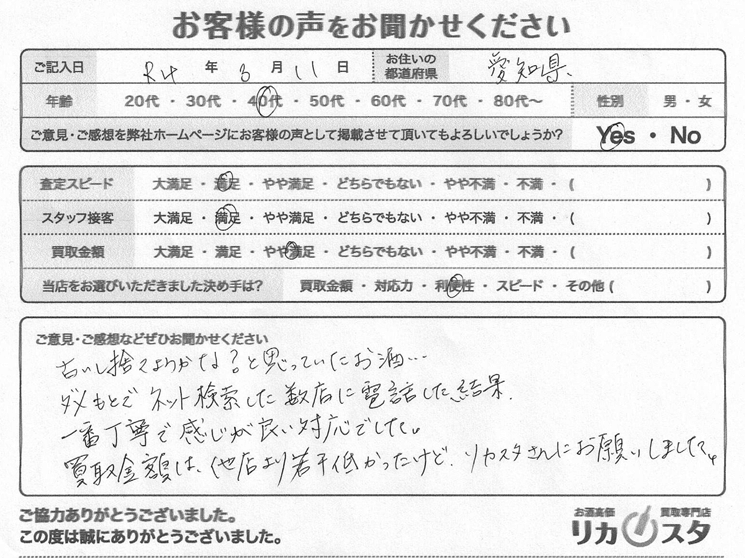 お客様の声をお聞かせください
ご記入日 R4 年 3 月 11 日 お住いの都道府県 愛知県.
年齢 20代 ・ 30代 ・ 40代 ・ 50代 ・ 60代 ・ 70代 ・ 80代〜 性別 男 ・ 女
ご意見・ご感想を弊社ホームページにお客様の声として掲載させて頂いてもよろしいでしょうか? Yes ・ No
査定スピード 大満足 ・ 満足 ・ やや満足 ・ どちらでもない ・ やや不満 ・ 不満 ・ ( )
スタッフ接客 大満足 ・ 満足 ・ やや満足 ・ どちらでもない ・ やや不満 ・ 不満 ・ ( )
買取金額 大満足 ・ 満足 ・ やや満足 ・ どちらでもない ・ やや不満 ・ 不満 ・ ( )
当店をお選びいただきました決め手は? 買取金額 ・ 対応力 ・ 利便性 ・ スピード ・ その他 ( )
ご意見・ご感想などぜひお聞かせください
古いし捨てようかな?と思っていたお酒…
ダメもとでネット検索した数店に電話した結果.
一番丁寧で感じが良い対応でした。
買取金額は、他店より若干低かったけど、リカスタさんにお願いしました。
ご協力ありがとうございました。
この度は誠にありがとうございました。
お酒高価 買取専門店
リカスタ